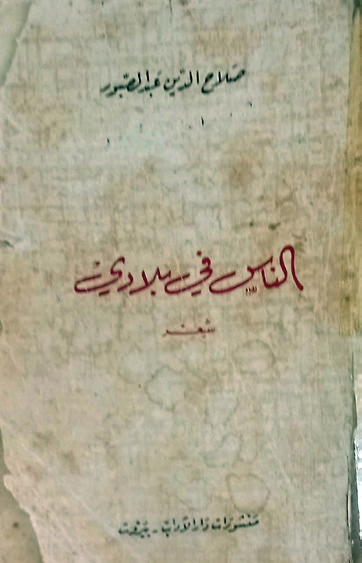 صلاح الدين عبد الصبور
الناس في بلادي
شعر
منشورات دار الآداب - بيروت